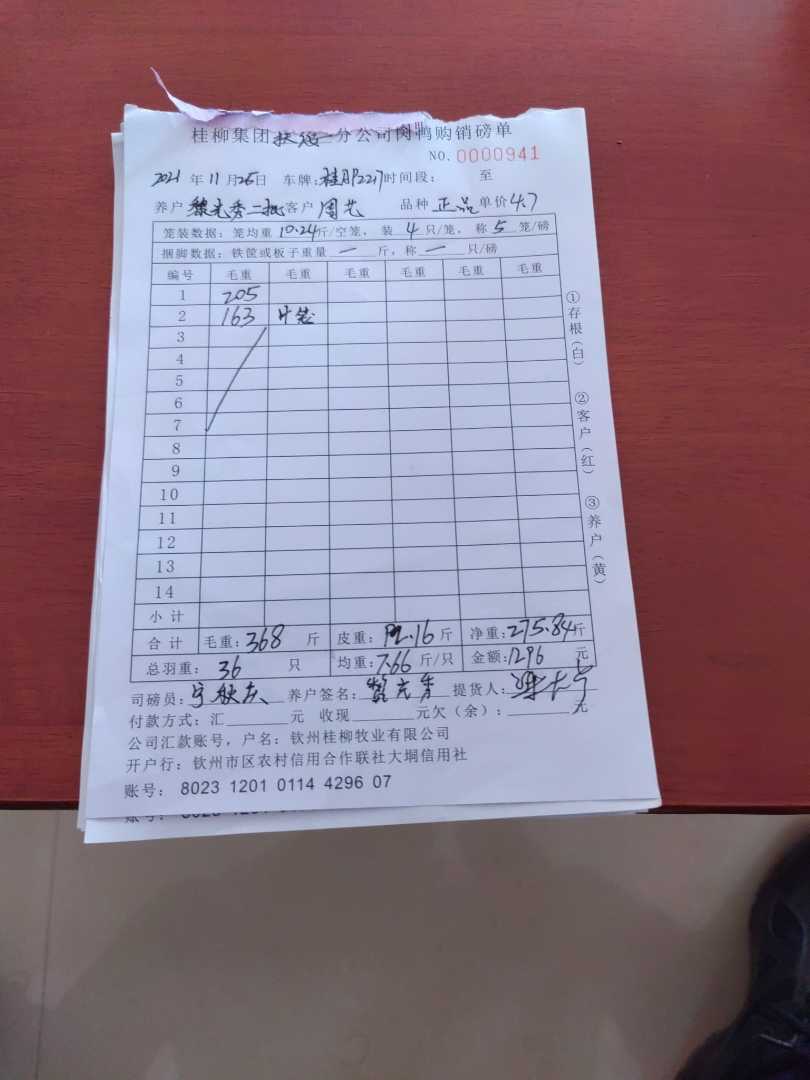 桂柳集团 分公司肉鸭购销磅单
NO. 0000941
2021 年 11 月 26 日 车牌: 时间段: 至
养户 黎光秀二批 客户 周艺 品种 正品 单价 4.7
笼装数据: 笼均重 10.24 斤/空笼, 装 4 只/笼, 称 5 笼/磅
捆脚数据: 铁筐或板子重量 一 斤, 称 一 只/磅
编号 毛重 毛重 毛重 毛重 毛重 毛重
1 205
2 163 4笼
3
4
5
6
7
8
9
10
11
12
13
14
小计
合计 毛重: 368 斤 皮重: 92.16 斤 净重: 275.84 斤
总羽重: 36 只 均重: 7.66 斤/只 金额: 1296 元
司磅员: 养户签名: 提货人:
付款方式: 汇 元 收现 元欠(余): 元
公司汇款账号, 户名: 钦州桂柳牧业有限公司
开户行: 钦州市区农村信用合作联社大垌信用社
账号: 8023 1201 0114 4296 07
①存根(白)
②客户(红)
③养户(黄)